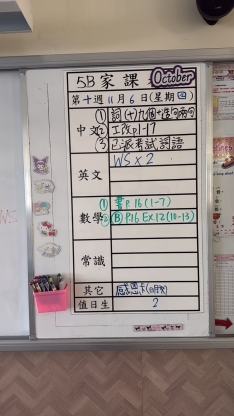 5B 家課
October
第十週 11月6日(星期四)
中文 ① 詞(十)九個+造句兩句
② 工改p1-17
③ 已派考試詞語
英文 WS x 2
數學 ① 書P.16(1-7)
② Ⓑ P.16 Ex.12(10-13)
常識
其它 感恩卡
值日生 2